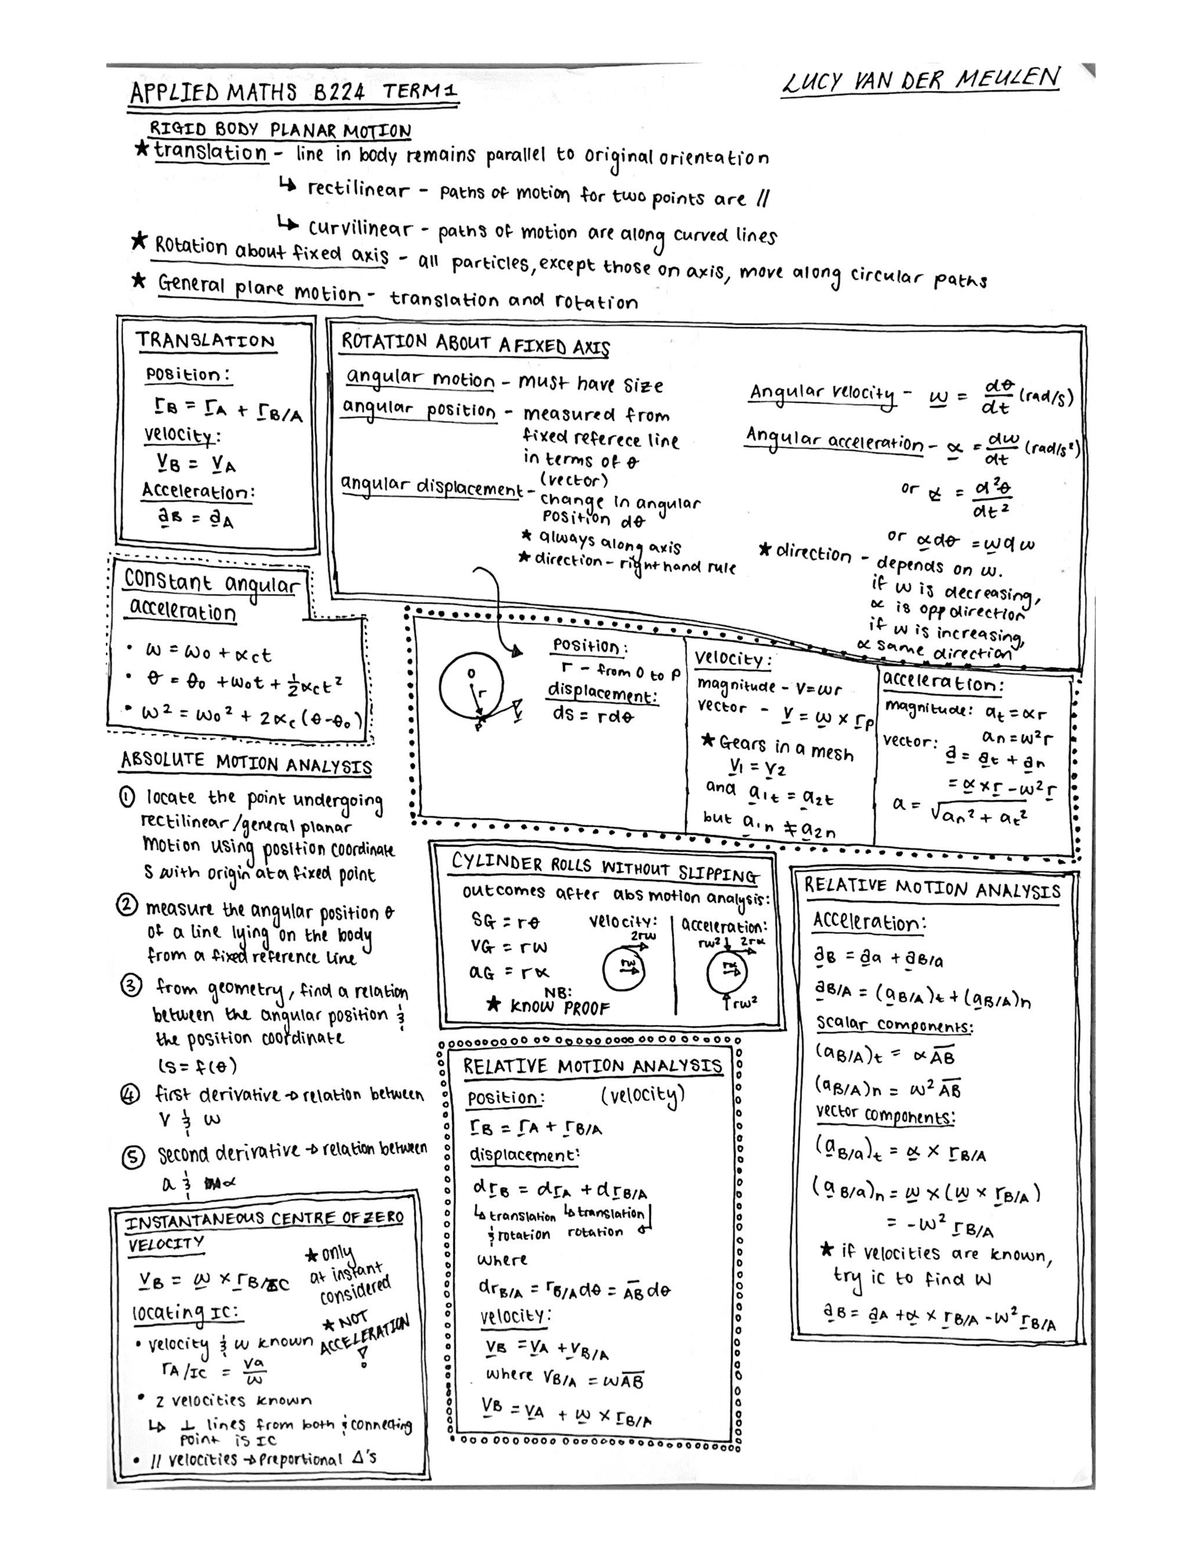 APPLIED MATHS B224 TERM 1
LUCY VAN DER MEULEN
RIGID BODY PLANAR MOTION
★ translation - line in body remains parallel to original orientation
↳ rectilinear - paths of motion for two points are //
↳ curvilinear - paths of motion are along curved lines
★ Rotation about fixed axis - all particles, except those on axis, move along circular paths
★ General plane motion - translation and rotation
TRANSLATION
Position:
r_B = r_A + r_B/A
velocity:
V_B = V_A
Acceleration:
a_B = a_A
ROTATION ABOUT A FIXED AXIS
angular motion - must have size
angular position - measured from
fixed referece line
in terms of θ
(vector)
angular displacement - change in angular
position dθ
★ always along axis
★ direction - right hand rule
Angular velocity - ω = dθ/dt (rad/s)
Angular acceleration - α = dω/dt (rad/s²)
or α = d²θ/dt²
or αdθ = ωdω
★ direction - depends on ω.
if ω is decreasing,
α is opp direction
if ω is increasing,
α same direction
Constant angular
acceleration
• ω = ω₀ + αct
• θ = θ₀ + ω₀t + ½αct²
• ω² = ω₀² + 2αc(θ-θ₀)
O
r
P
V
Position:
r - from O to P
displacement:
ds = rdθ
velocity:
magnitude - V = ωr
vector - V = ω × r_P
★ Gears in a mesh
V₁ = V₂
and a₁t = a₂t
but a₁n ≠ a₂n
acceleration:
magnitude: at = αr
an = ω²r
vector: a = at + an
= α × r - ω²r
a = √an² + at²
ABSOLUTE MOTION ANALYSIS
① locate the point undergoing
rectilinear/general planar
motion using position coordinate
S with origin at a fixed point
② measure the angular position θ
of a line lying on the body
from a fixed reference line
③ from geometry, find a relation
between the angular position &
the position coordinate
(S = f(θ)
④ first derivative → relation between
V & ω
⑤ second derivative → relation between
a & α
CYLINDER ROLLS WITHOUT SLIPPING
outcomes after abs motion analysis:
SG = rθ
VG = rω
aG = rα
NB:
★ KNOW PROOF
velocity:
2rω
rω
acceleration:
rω² 2rα
rα
rω²
RELATIVE MOTION ANALYSIS
(velocity)
position:
r_B = r_A + r_B/A
displacement:
dr_B = dr_A + dr_B/A
↳ translation ↳ translation
& rotation rotation
where
dr_B/A = r_B/A dθ = A̅B̅ dθ
velocity:
V_B = V_A + V_B/A
where V_B/A = ωA̅B̅
V_B = V_A + ω × r_B/A
RELATIVE MOTION ANALYSIS
Acceleration:
a_B = a_a + a_B/a
a_B/A = (a_B/A)t + (a_B/A)n
scalar components:
(a_B/A)t = αA̅B̅
(a_B/A)n = ω²A̅B̅
vector components:
(a_B/a)t = α × r_B/A
(a_B/a)n = ω × (ω × r_B/A)
= -ω² r_B/A
★ if velocities are known,
try ic to find ω
a_B = a_A + α × r_B/A - ω² r_B/A
INSTANTANEOUS CENTRE OF ZERO
VELOCITY
★ only
at instant
considered
V_B = ω × r_B/IC
locating IC:
★ NOT
ACCELERATION
!
• velocity & ω known
r_A/IC = Va/ω
• 2 velocities known
↳ ⊥ lines from both & connecting
point is IC
• // velocities → preportional Δ's